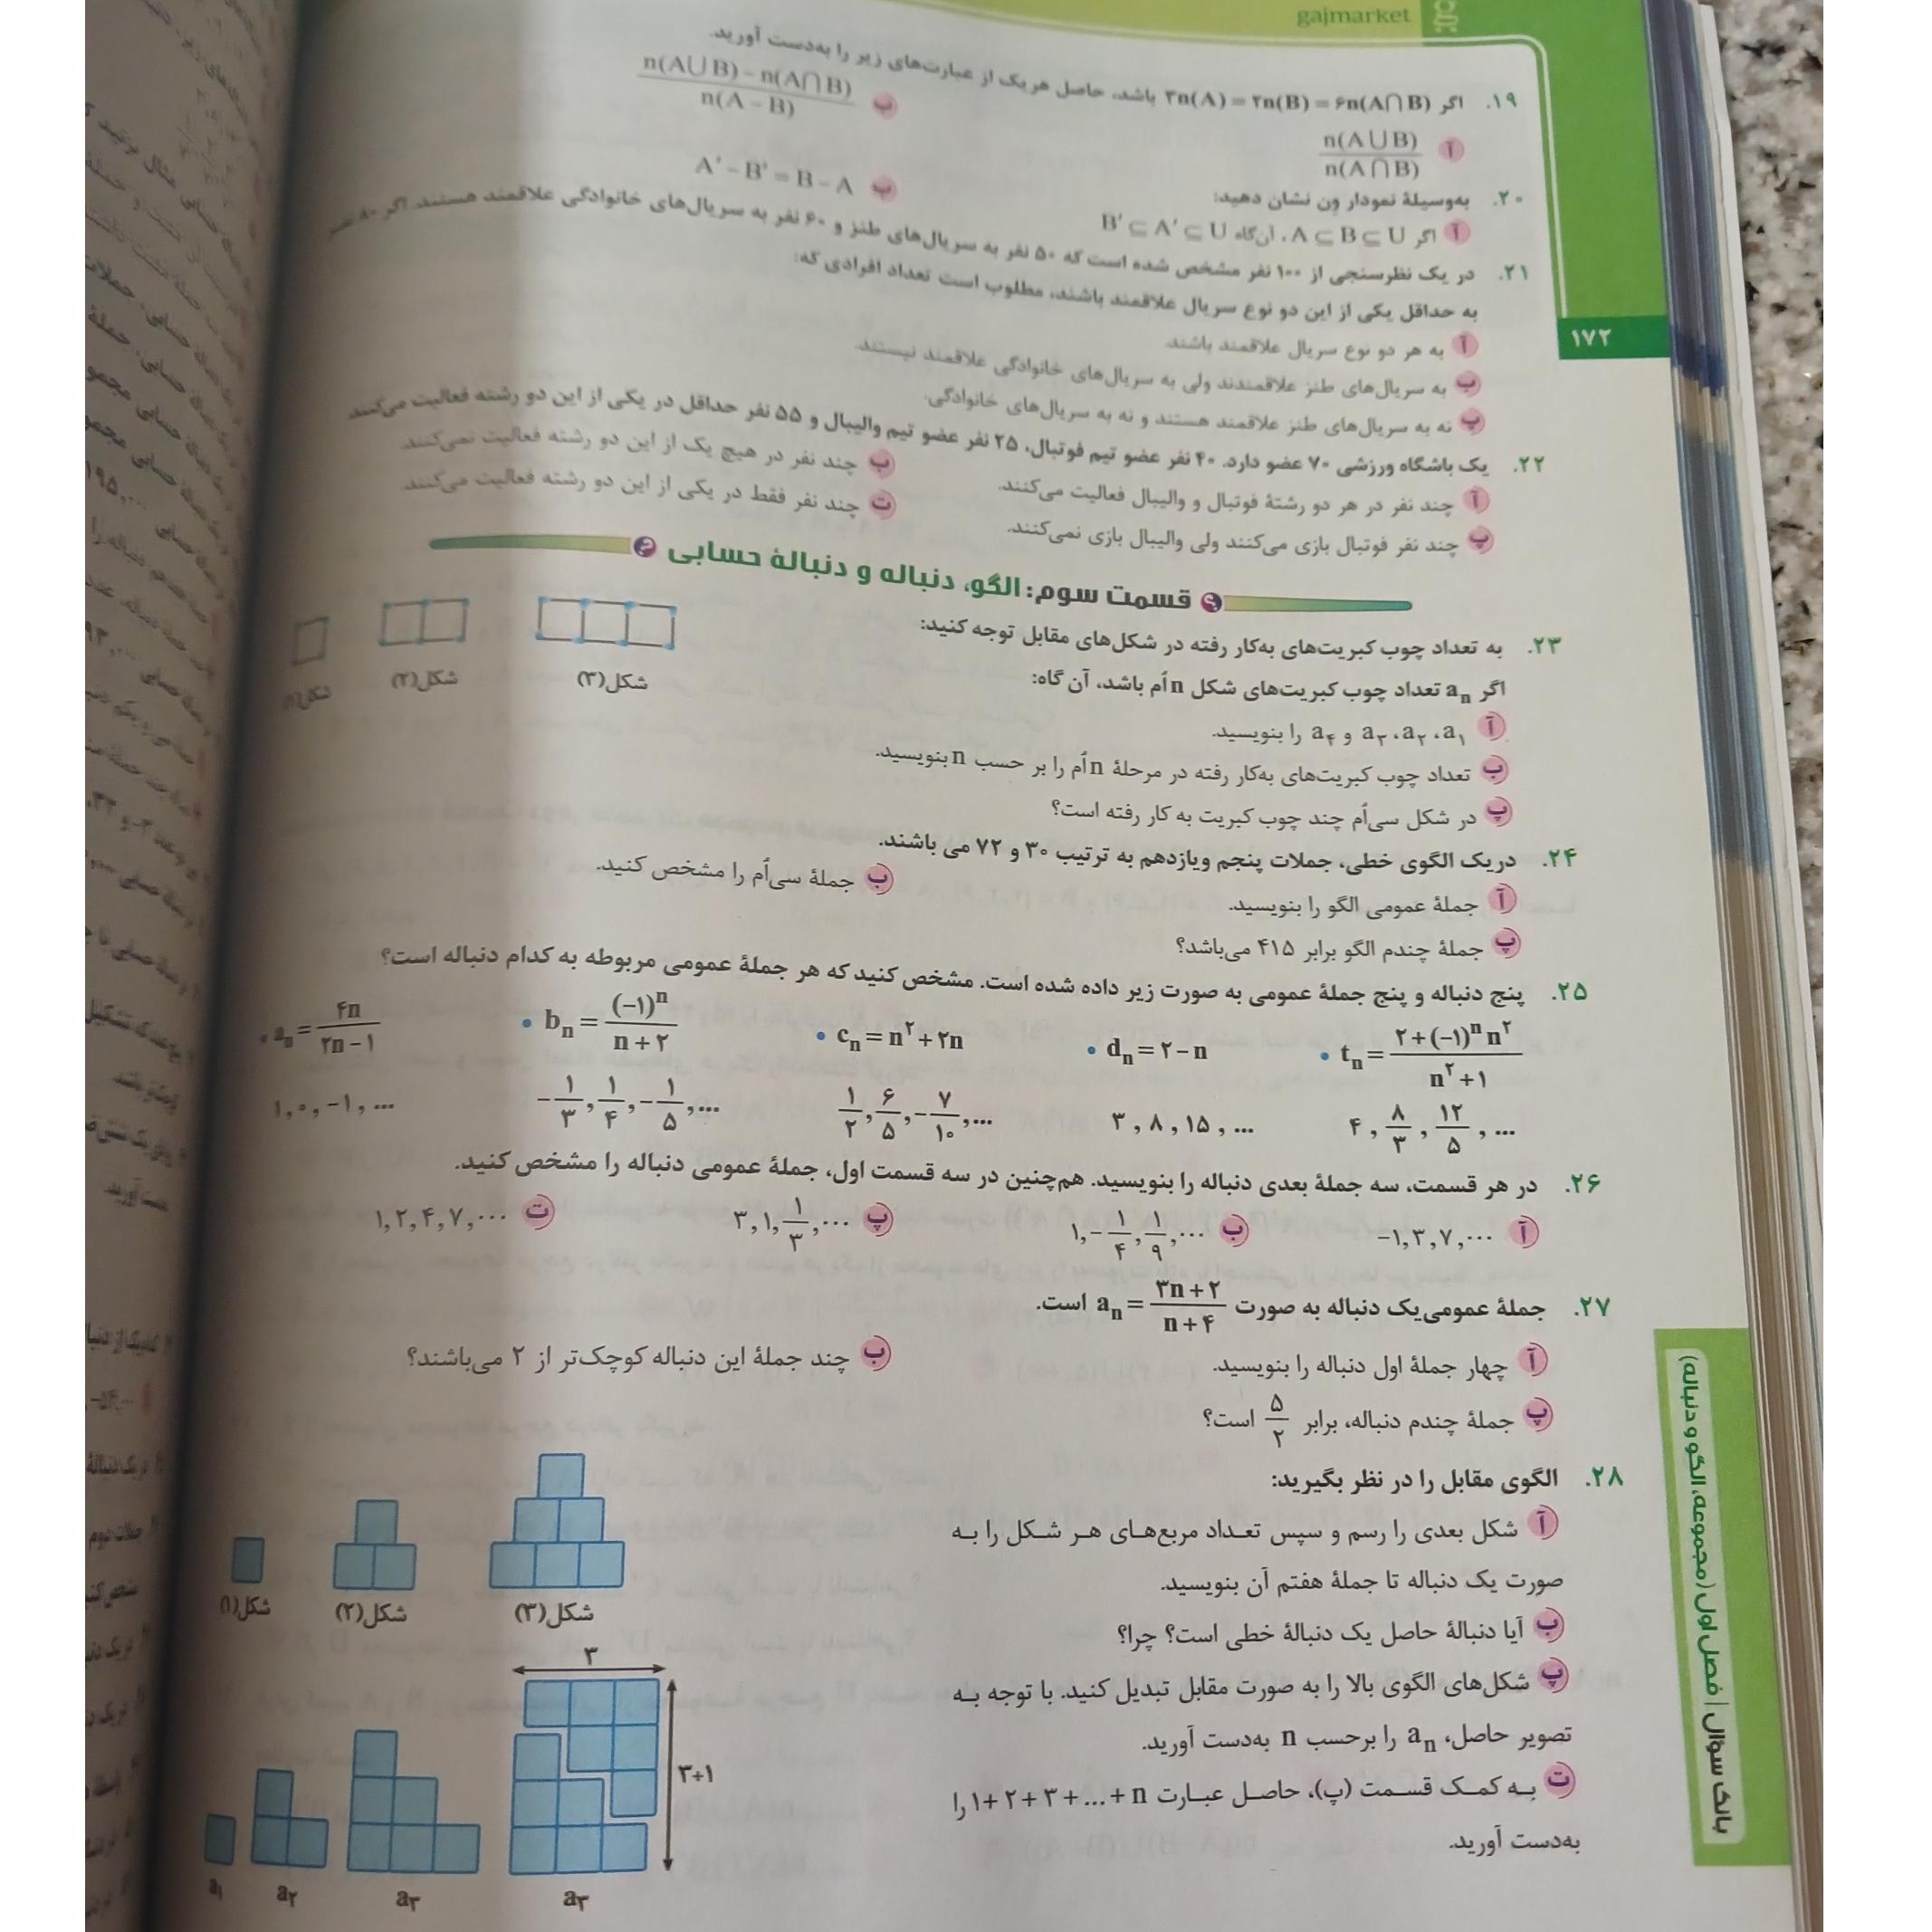 gajmarket
۱۹. اگر ۳n(A) = ۲n(B) = ۶n(A∩B) باشد، حاصل هریک از عبارت‌های زیر را به‌دست آورید.
آ n(A∪B) / n(A∩B)
ب n(A∪B) – n(A∩B) / n(A – B)
۲۰. به‌وسیلهٔ نمودار ون نشان دهید:
آ اگر A ⊆ B ⊆ U، آن‌گاه B′ ⊆ A′ ⊆ U
ب A′ – B′ = B – A
۲۱. در یک نظرسنجی از ۱۰۰ نفر مشخص شده است که ۵۰ نفر به سریال‌های طنز و ۶۰ نفر به سریال‌های خانوادگی علاقمند هستند. اگر ۸۰ نفر
به حداقل یکی از این دو نوع سریال علاقمند باشند، مطلوب است تعداد افرادی که:
آ به هر دو نوع سریال علاقمند باشند.
ب به سریال‌های طنز علاقمندند ولی به سریال‌های خانوادگی علاقمند نیستند.
پ نه به سریال‌های طنز علاقمند هستند و نه به سریال‌های خانوادگی.
۱۷۲
۲۲. یک باشگاه ورزشی ۷۰ عضو دارد. ۴۰ نفر عضو تیم فوتبال، ۲۵ نفر عضو تیم والیبال و ۵۵ نفر حداقل در یکی از این دو رشته فعالیت می‌کنند.
آ چند نفر در هر دو رشتهٔ فوتبال و والیبال فعالیت می‌کنند.
ب چند نفر در هیچ یک از این دو رشته فعالیت نمی‌کنند.
پ چند نفر فوتبال بازی می‌کنند ولی والیبال بازی نمی‌کنند.
ت چند نفر فقط در یکی از این دو رشته فعالیت می‌کنند.
قسمت سوم: الگو، دنباله و دنبالهٔ حسابی
۲۳. به تعداد چوب کبریت‌های به‌کار رفته در شکل‌های مقابل توجه کنید:
شکل(۱) شکل(۲) شکل(۳)
اگر aₙ تعداد چوب کبریت‌های شکل nاُم باشد، آن گاه:
آ a₁، a₂، a₃ و a₄ را بنویسید.
ب تعداد چوب کبریت‌های به‌کار رفته در مرحلهٔ nاُم را بر حسب n بنویسید.
پ در شکل سی‌اُم چند چوب کبریت به کار رفته است؟
۲۴. دریک الگوی خطی، جملات پنجم ویازدهم به ترتیب ۳۰ و ۷۲ می باشند.
آ جملهٔ عمومی الگو را بنویسید.
ب جملهٔ سی‌اُم را مشخص کنید.
پ جملهٔ چندم الگو برابر ۴۱۵ می‌باشد؟
۲۵. پنج دنباله و پنج جملهٔ عمومی به صورت زیر داده شده است. مشخص کنید که هر جملهٔ عمومی مربوطه به کدام دنباله است؟
• aₙ = ۴n / ۲n – ۱ • bₙ = (–۱)ⁿ / n + ۲ • cₙ = n² + ۲n • dₙ = ۲ – n • tₙ = ۲ + (–۱)ⁿ n² / n² + ۱
۱, ۰, –۱, ... –۱/۳, ۱/۴, –۱/۵, ... ۱/۲, ۶/۵, –۷/۱۰, ... ۳, ۸, ۱۵, ... ۴, ۸/۳, ۱۲/۵, ...
۲۶. در هر قسمت، سه جملهٔ بعدی دنباله را بنویسید. هم‌چنین در سه قسمت اول، جملهٔ عمومی دنباله را مشخص کنید.
آ –۱, ۳, ۷, ...
ب ۱, –۱/۴, ۱/۹, ...
پ ۳, ۱, ۱/۳, ...
ت ۱, ۲, ۴, ۷, ...
۲۷. جملهٔ عمومی‌یک دنباله به صورت aₙ = ۳n + ۲ / n + ۴ است.
آ چهار جملهٔ اول دنباله را بنویسید.
ب چند جملهٔ این دنباله کوچک‌تر از ۲ می‌باشند؟
پ جملهٔ چندم دنباله، برابر ۵/۲ است؟
۲۸. الگوی مقابل را در نظر بگیرید:
آ شکل بعدی را رسم و سپس تعداد مربع‌های هر شکل را به
صورت یک دنباله تا جملهٔ هفتم آن بنویسید.
شکل(۱) شکل(۲) شکل(۳)
ب آیا دنبالهٔ حاصل یک دنبالهٔ خطی است؟ چرا؟
پ شکل‌های الگوی بالا را به صورت مقابل تبدیل کنید. با توجه به
تصویر حاصل، aₙ را برحسب n به‌دست آورید.
ت به کمک قسمت (پ)، حاصل عبارت ۱+۲+۳+...+n را
به‌دست آورید.
۳
۳+۱
a₁ a₂ a₃ a₃
بانک سؤال | فصل اول (مجموعه، الگو و دنباله)